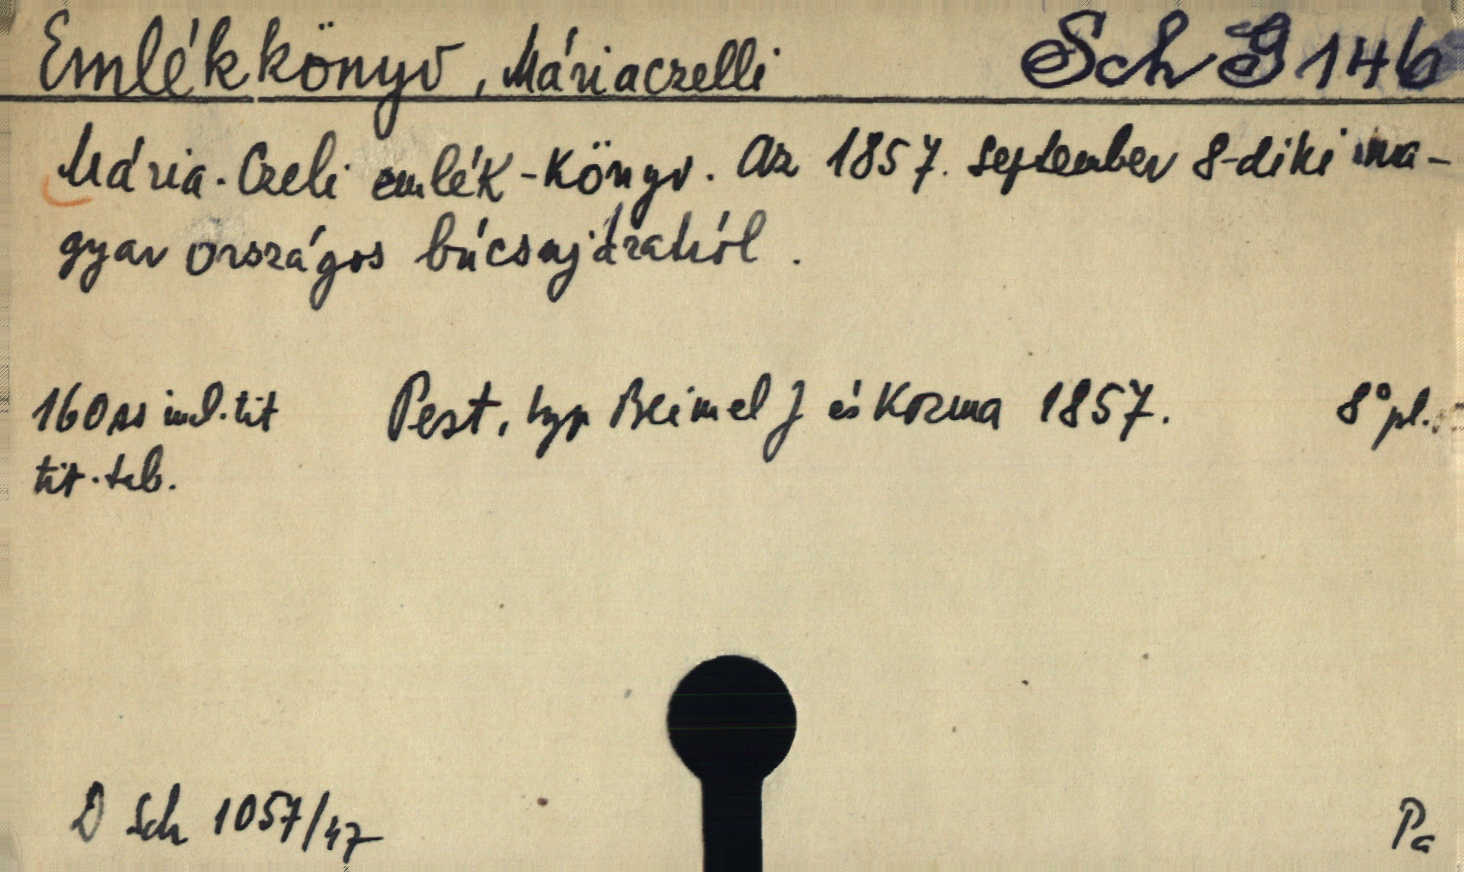 Emlékkönyv, Máriaczelli Sch G 146
Mária-Czeli emlék-könyv. Az 1857. september 8-diki ma-
gyar országos búcsujáratról.
160 ss incl. tit Pest, typ Beimel J és Kozma 1857. 8° pl.
tit. tab.
D Sch 1057/47 Pa